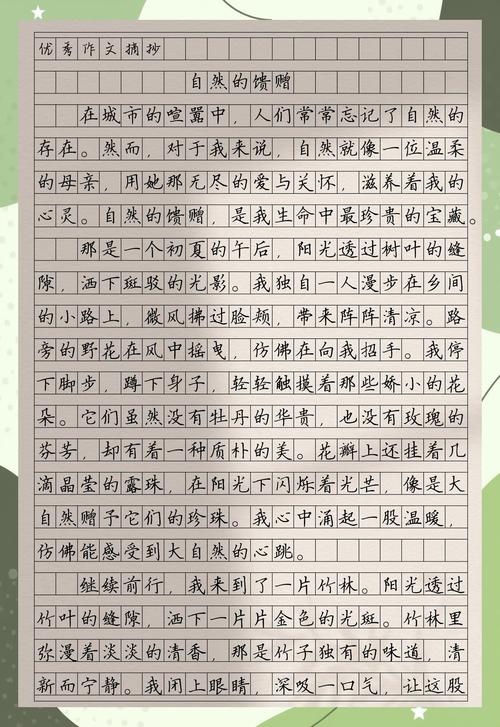 优秀作文摘抄
自然的馈赠
在城市的喧嚣中，人们常常忘记了自然的
存在。然而，对于我来说，自然就像一位温柔
的母亲，用她那无尽的爱与关怀，滋养着我的
心灵。自然的馈赠，是我生命中最珍贵的宝藏。
那是一个初夏的午后，阳光透过树叶的缝
隙，洒下斑驳的光影。我独自一人漫步在乡间
的小路上，微风拂过脸颊，带来阵阵清凉。路
旁的野花在风中摇曳，仿佛在向我招手。我停
下脚步，蹲下身子，轻轻触摸着那些娇小的花
朵。它们虽然没有牡丹的华贵，也没有玫瑰的
芬芳，却有着一种质朴的美。花瓣上还挂着几
滴晶莹的露珠，在阳光下闪烁着光芒，像是大
自然赠予它们的珍珠。我心中涌起一股温暖，
仿佛能感受到大自然的心跳。
继续前行，我来到了一片竹林。阳光透过
竹叶的缝隙，洒下一片片金色的光斑。竹林里
弥漫着淡淡的清香，那是竹子独有的味道，清
新而宁静。我闭上眼睛，深吸一口气，让这股